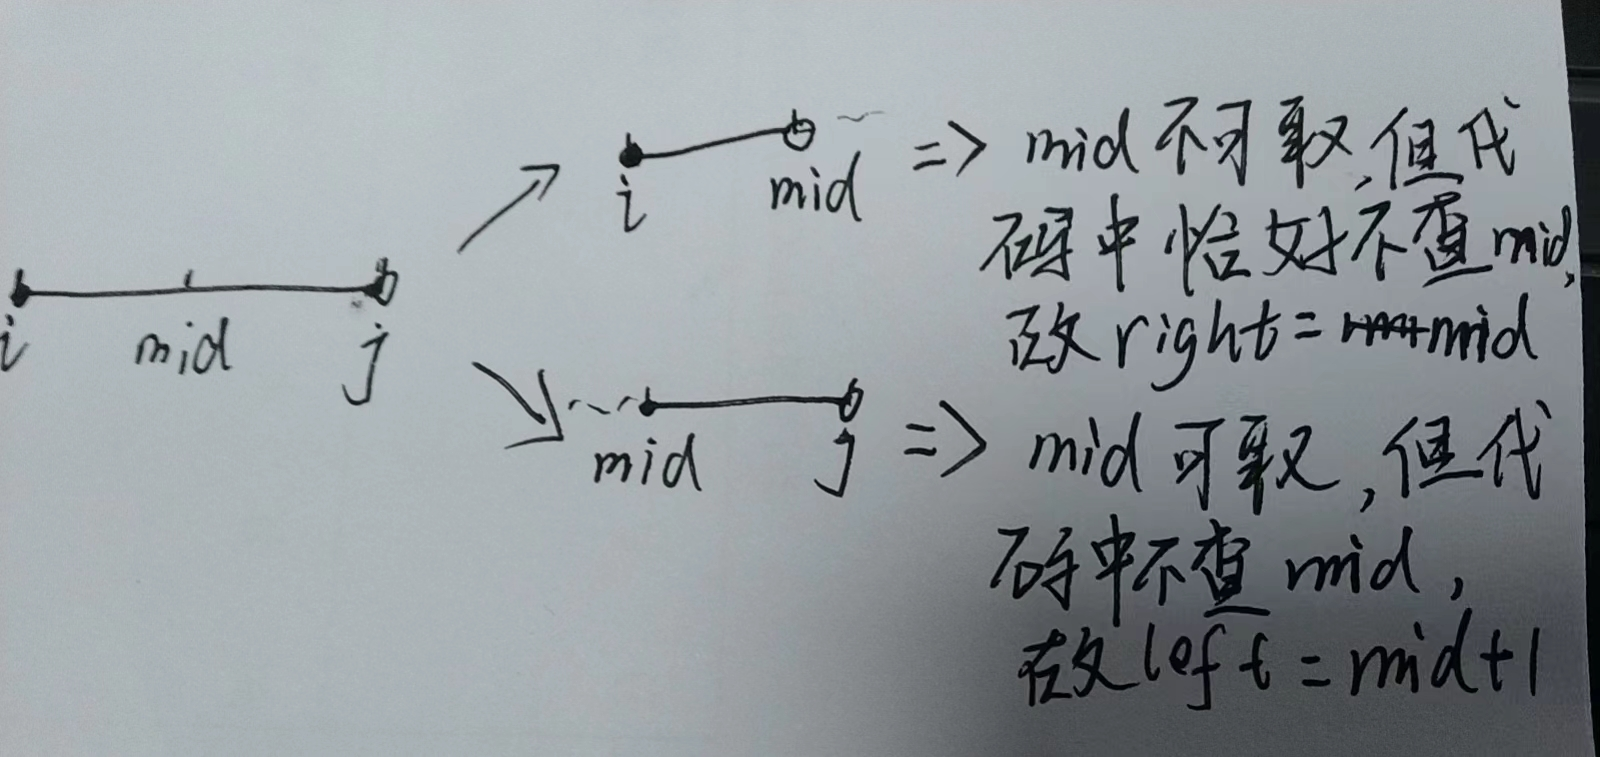 i mid j
i mid
=> mid不可取,但代
码中恰好不查mid,
故right=mid
mid j
=> mid可取,但代
码中不查mid,
故left=mid+1